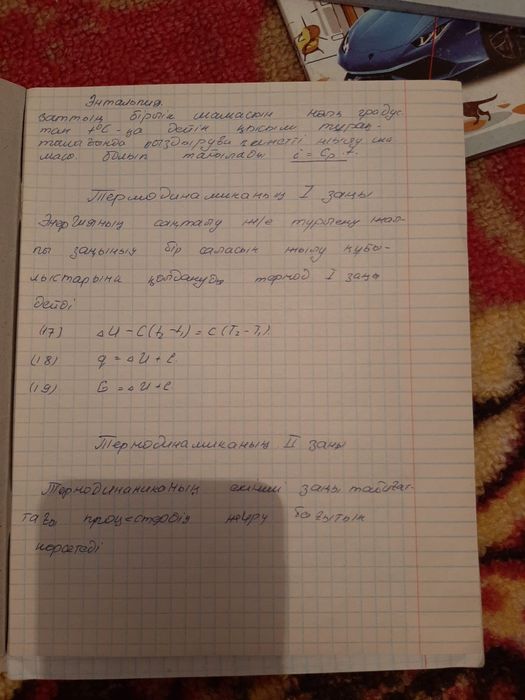 Энтальпия.
Заттың бірлік шамасын нөлг градус
тан t°C-ңа дейін қысым тұрақ-
талғанда қыздыруға қажетті жылу
масы болып табылады i = Cp · t.
Термодинамиканың I заңы
Энергияның сақталу ж/е түрлену жал-
пы заңының бір саласын жылу құбы-
лыстарына қолдануды термод I заңы
дейді
(17) ΔU - C(t₂-t₁) = C(T₂-T₁).
(18) q = ΔU + l.
(19) G = ΔU + l.
Термодинамиканың II заңы
Термодинаниканың екінші заңы табиғат-
тағы процестердің жүру бағытын
көрсетеді